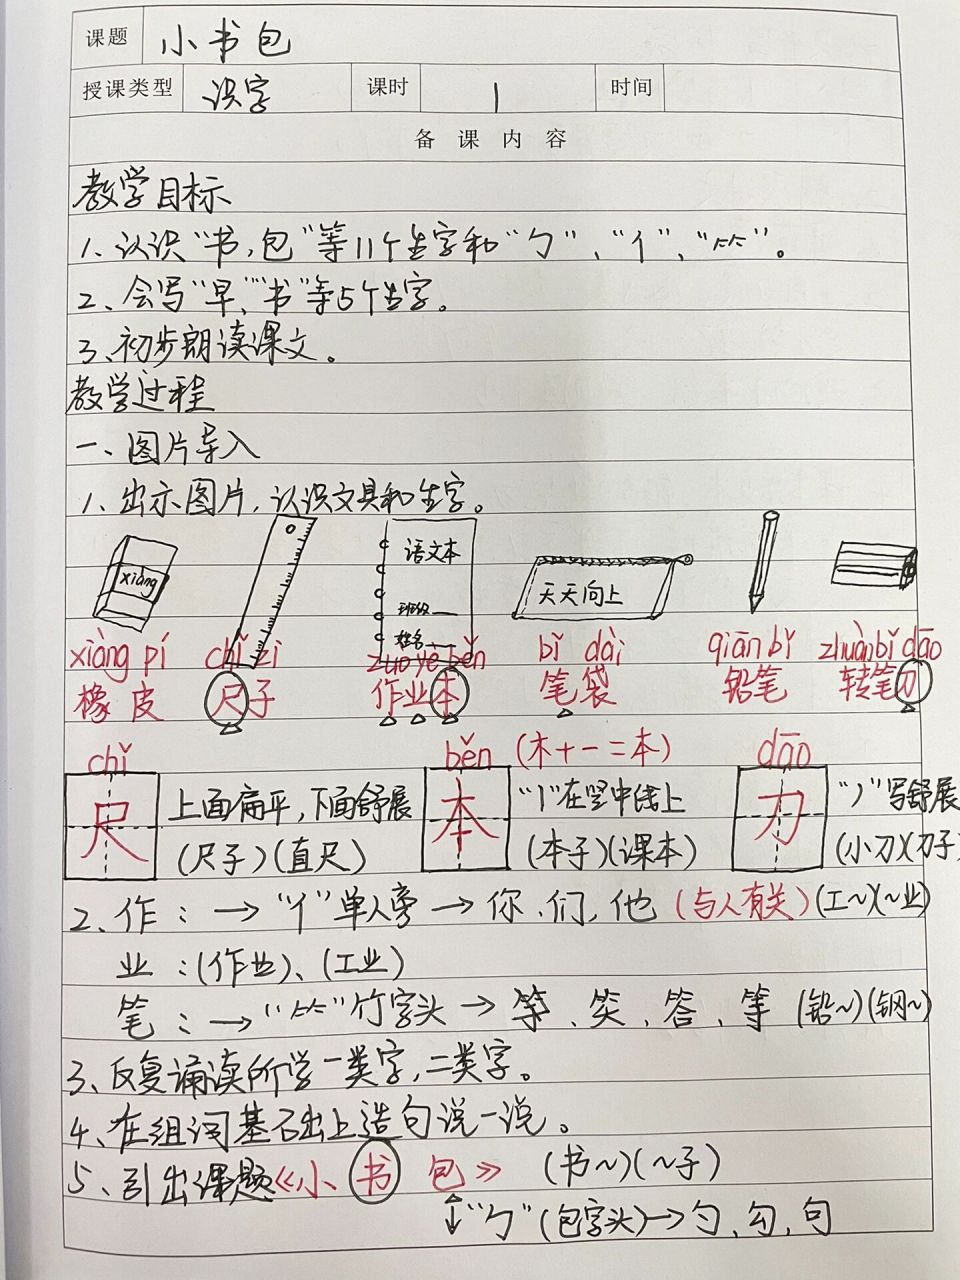 课题 小书包
授课类型 识字 课时 1 时间
备课内容
教学目标
1、认识“书,包”等11个生字和“勹”、“亻”、“⺮”。
2、会写“早”“书”等5个生字。
3、初步朗读课文。
教学过程
一、图片导入
1、出示图片,认识文具和生字。
xiàng
语文本
班级
姓名
天天向上
xiàng pí chǐ zi zuo yè běn bǐ dài qiān bǐ zhuàn bǐ dāo
橡皮 尺子 作业本 笔袋 铅笔 转笔刀
chǐ běn (木+一=本) dāo
尺 上面扁平,下面舒展 本 “丨”在竖中线上 刀 “丿”写舒展
(尺子)(直尺) (本子)(课本) (小刀)(刀子)
2、作:→“亻”单人旁→你、们、他(与人有关)(工~)(~业)
业:(作业)、(工业)
笔:→“⺮”竹字头→等、笑、答、等(铅~)(钢~)
3、反复诵读所学一类字,二类字。
4、在组词基础上造句说一说。
5、引出课题《小书包》 (书~)(~子)
“勹”(包字头)→勺、勾、句